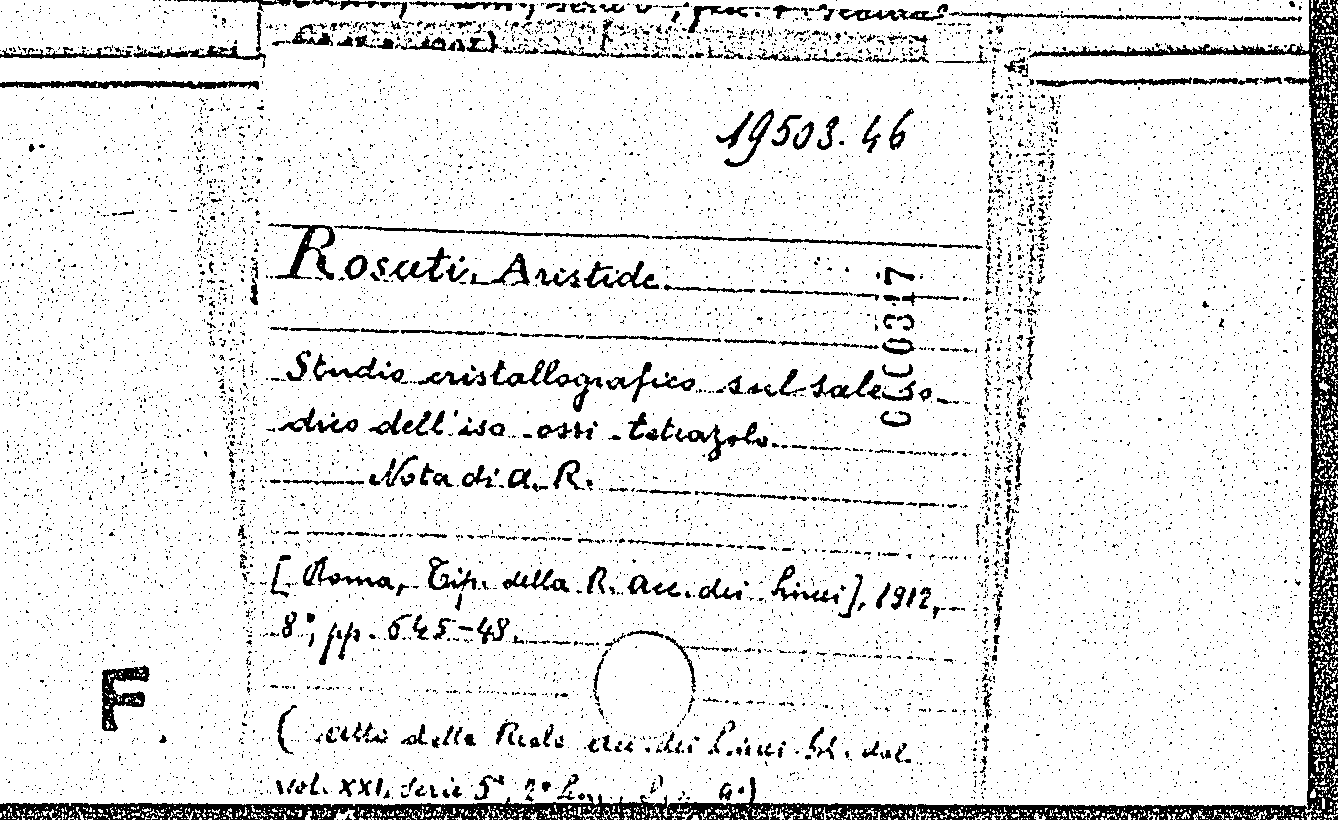 19503. 46
Rosati, Aristide.
Studio cristallografico sul sale so-
dico dell'iso-ossi-tetrazolo.
Nota di A. R.
[Roma, Tip. della R. Acc. dei Lincei], 1912,
8°, pp. 645-48.
della Reale Acc. dei Lincei
vol. XXI, serie 5ª, 2°
0000317
F